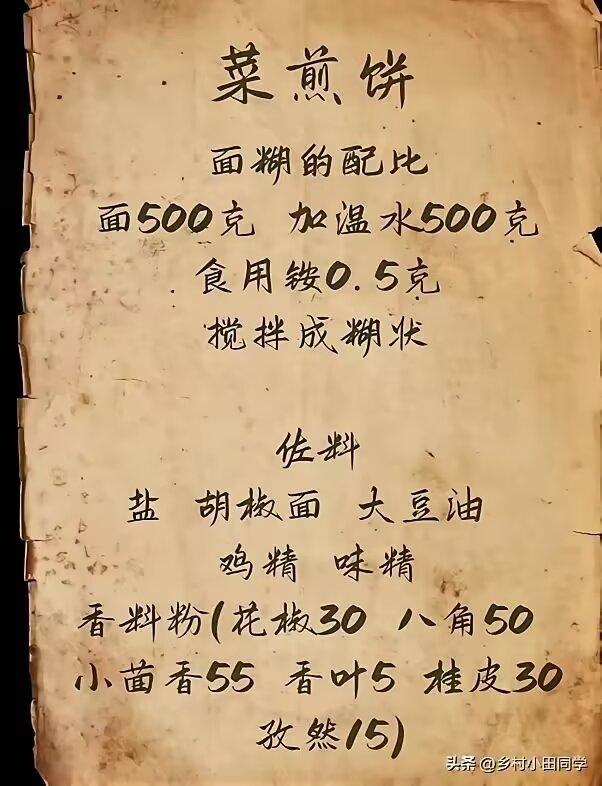 菜煎饼
面糊的配比
面500克 加温水500克
食用铵0.5克
搅拌成糊状
佐料
盐 胡椒面 大豆油
鸡精 味精
香料粉(花椒30 八角50
小茴香55 香叶5 桂皮30
孜然15)
头条 @乡村小田同学